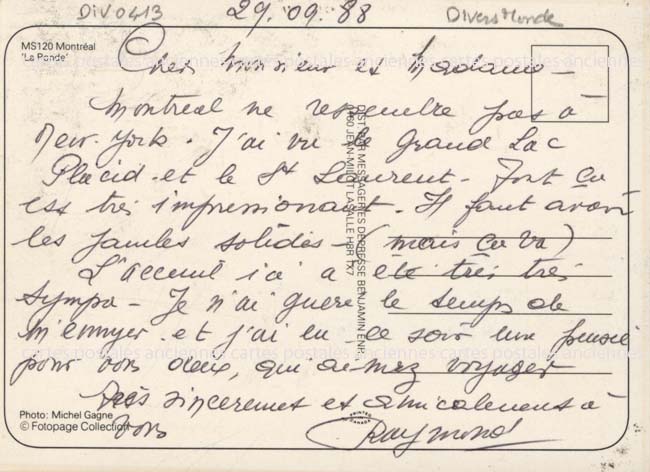 DIV0413
29. 09. 88
Divers Monde
MS120 Montréal
'La Ronde'
Cher Monsieur et Madame -
Montréal ne ressemble pas à
New-York. J'ai vu le Grand Lac
Placid et le St Laurent - Tout ça
est très impressionant. Il faut avoir
les jambes solides - (mais ça va)
L'acceuil ici a été très très
sympa - Je n'ai guere le temps de
m'ennuyer et j'ai eu ce soir une pensée
pour vous deux, qui aimez voyager
Très sincerement et amicalement à
vous
Raymond
Photo: Michel Gagne
© Fotopage Collection
DIST. PAR MESSAGERIES DE PRESSE BENJAMIN ENR.
JEAN-MILOT LASALLE H8R 1X7
PRINTED
CANADA
cartes postales anciennes cartes postales anciennes cartes postales anciennes
cartes postales anciennes cartes postales anciennes cartes postales anciennes